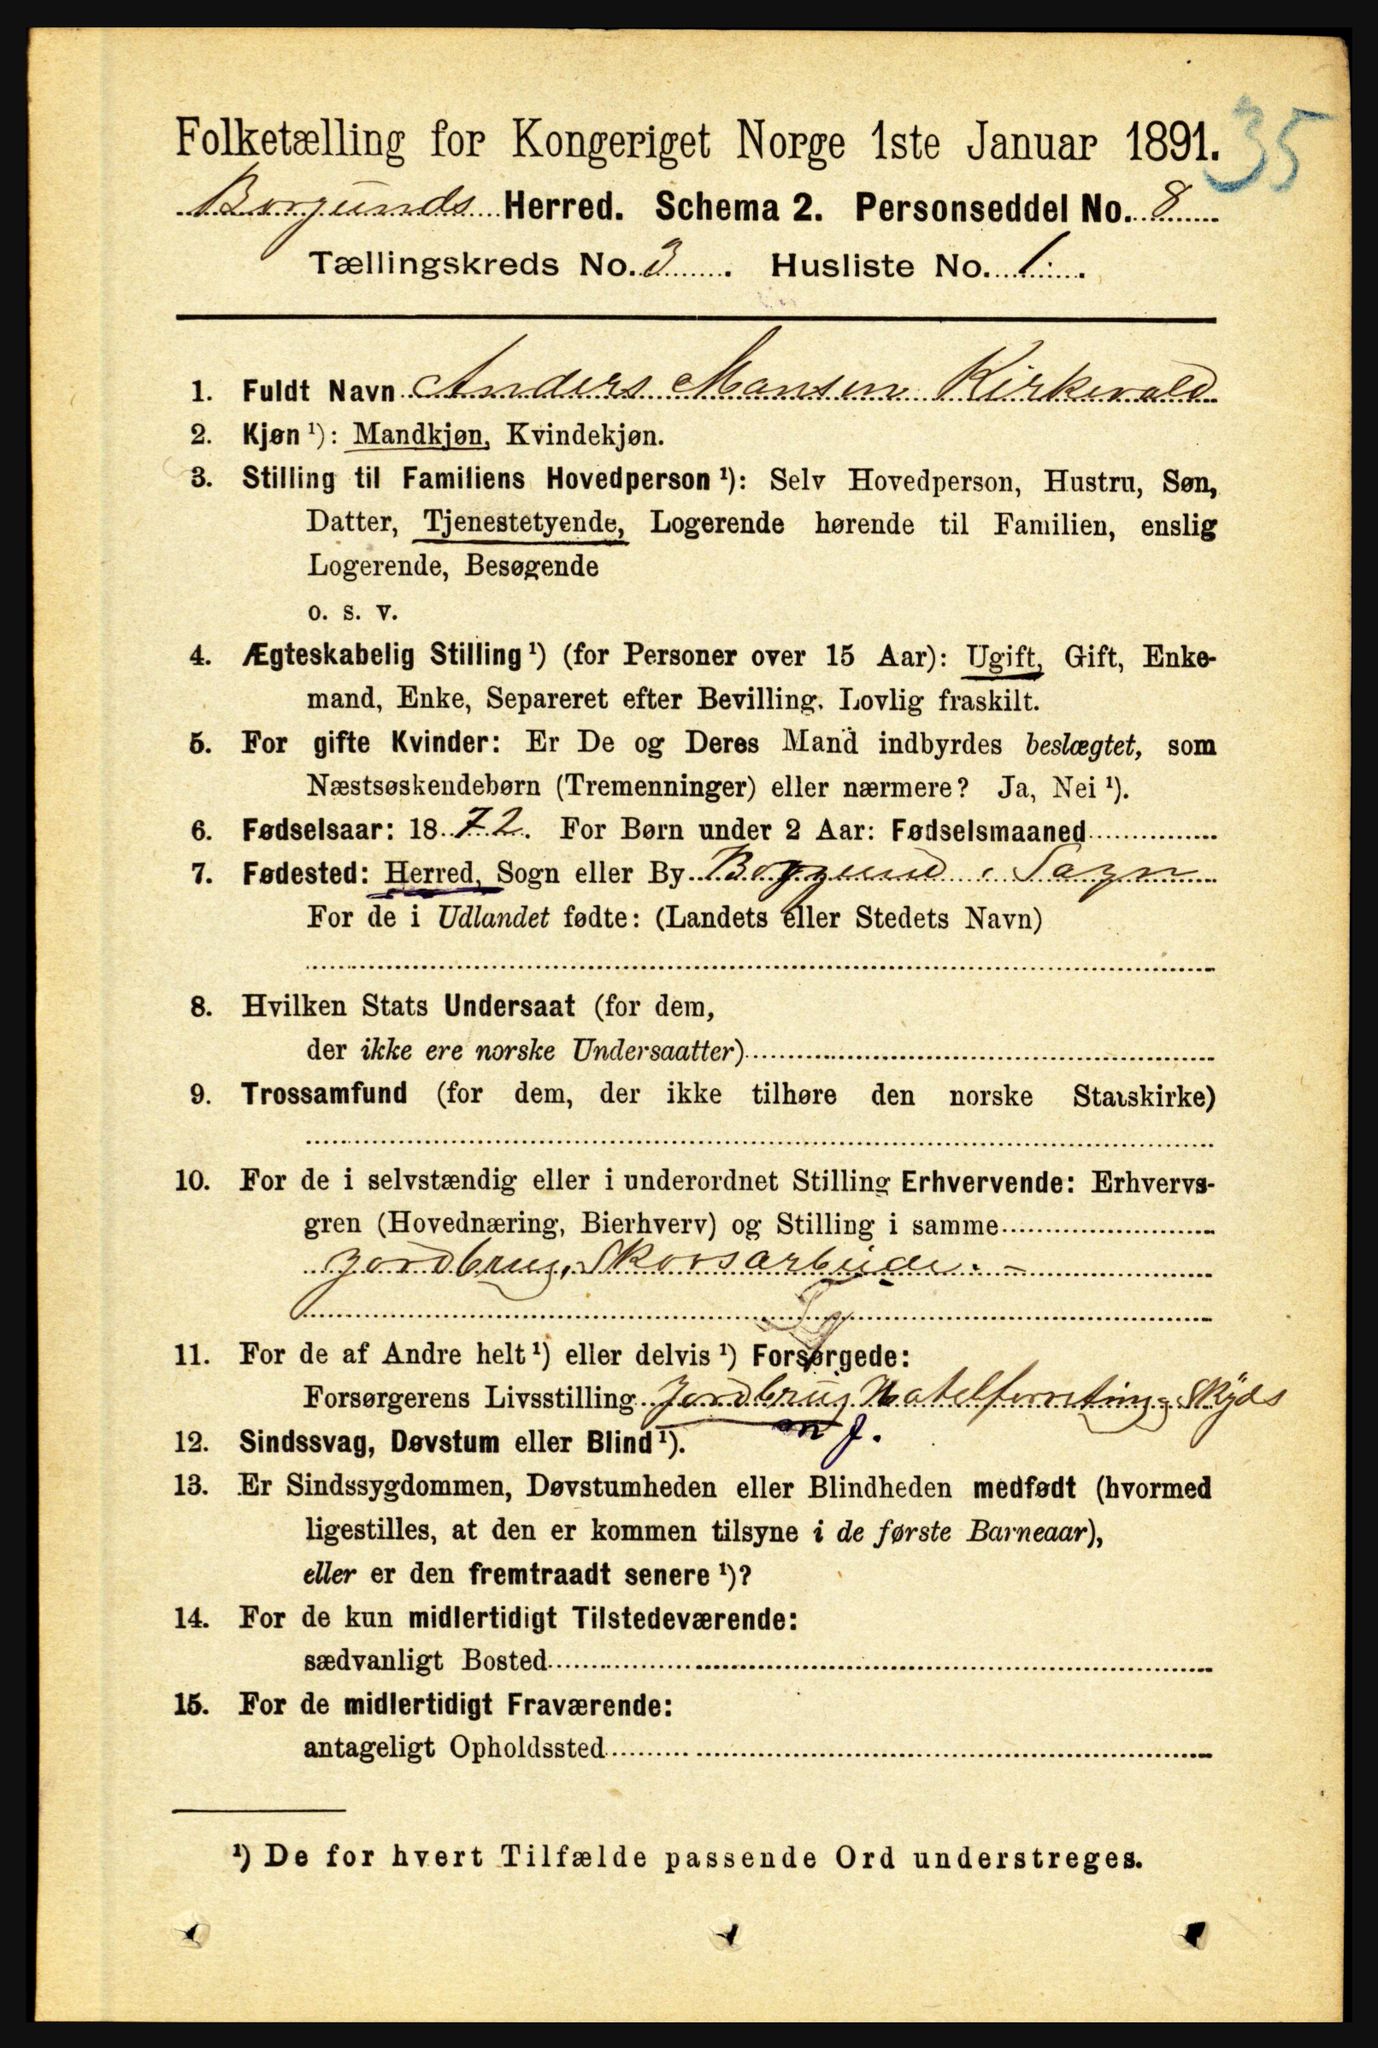 Folketælling for Kongeriget Norge 1ste Januar 1891.
35
Borgunds Herred. Schema 2. Personseddel No. 8
Tællingskreds No. 3. Husliste No. 1.
1. Fuldt Navn Anders Mansen Kirkevold
2. Kjøn ¹): Mandkjøn, Kvindekjøn.
3. Stilling til Familiens Hovedperson ¹): Selv Hovedperson, Hustru, Søn,
Datter, Tjenestetyende, Logerende hørende til Familien, enslig
Logerende, Besøgende
o. s. v.
4. Ægteskabelig Stilling ¹) (for Personer over 15 Aar): Ugift, Gift, Enke-
mand, Enke, Separeret efter Bevilling. Lovlig fraskilt.
5. For gifte Kvinder: Er De og Deres Mand indbyrdes beslægtet, som
Næstsøskendebørn (Tremenninger) eller nærmere? Ja, Nei ¹).
6. Fødselsaar: 1872. For Børn under 2 Aar: Fødselsmaaned
7. Fødested: Herred, Sogn eller By Borgund i Sogn
For de i Udlandet fødte: (Landets eller Stedets Navn)
8. Hvilken Stats Undersaat (for dem,
der ikke ere norske Undersaatter)
9. Trossamfund (for dem, der ikke tilhøre den norske Statskirke)
10. For de i selvstændig eller i underordnet Stilling Erhvervende: Erhvervs-
gren (Hovednæring, Bierhverv) og Stilling i samme
Jordbrug, Skovsarbeide. -
11. For de af Andre helt ¹) eller delvis ¹) Forsørgede:
Forsørgerens Livsstilling Jordbrug Hotelforretning, Skyds
12. Sindssvag, Døvstum eller Blind ¹).
13. Er Sindssygdommen, Døvstumheden eller Blindheden medfødt (hvormed
ligestilles, at den er kommen tilsyne i de første Barneaar),
eller er den fremtraadt senere ¹)?
14. For de kun midlertidigt Tilstedeværende:
sædvanligt Bosted
15. For de midlertidigt Fraværende:
antageligt Opholdssted
¹) De for hvert Tilfælde passende Ord understreges.